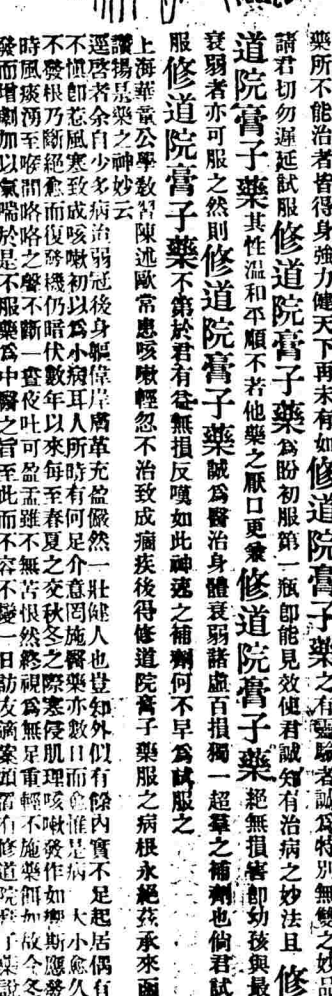 藥所不能治者皆得身強力健天下再未有如修道院膏子藥之有靈驗者誠爲特別無雙之妙品
請君切勿遲延試服修道院膏子藥爲盼初服第一瓶卽能見效使君誠知有治病之妙法且修
道院膏子藥其性溫和平順不若他藥之厭口更兼修道院膏子藥絕無損害卽幼孩與最
衰弱者亦可服之然則修道院膏子藥誠爲醫治身體衰弱諸虛百損獨一超羣之補劑也倘君試
服修道院膏子藥不第於君有益無損反嘆如此神速之補劑何不早爲試服之
上海華童公學敎習陳述歐常患咳嗽輕忽不治致成痼疾後得修道院膏子藥服之病根永絕茲承來函
讚揚是藥之神妙云
逕啓者余自少多病治弱冠後身軀偉岸膚革充盈儼然一壯健人也豈知外似有餘內實不足起居偶有
不愼卽惹風寒致成咳嗽初以爲小病耳人所時有何足介意罔施醫藥亦數日而愈惟是病大小愈久
不發根乃斷絕愈而復發機仍暗伏數年以來每至春夏之交秋冬之際寒侵肌理咳嗽發作如響斯應發
時風痰湧至喉間咯咯之聲不斷一晝夜吐可盈盂雖不無苦恨然終視爲無足重輕不施藥餌如故今冬
發而增劇加以氣喘於是不服藥爲中醫之旨至此而不容不變一日訪友滴案頭有修道院膏子藥說